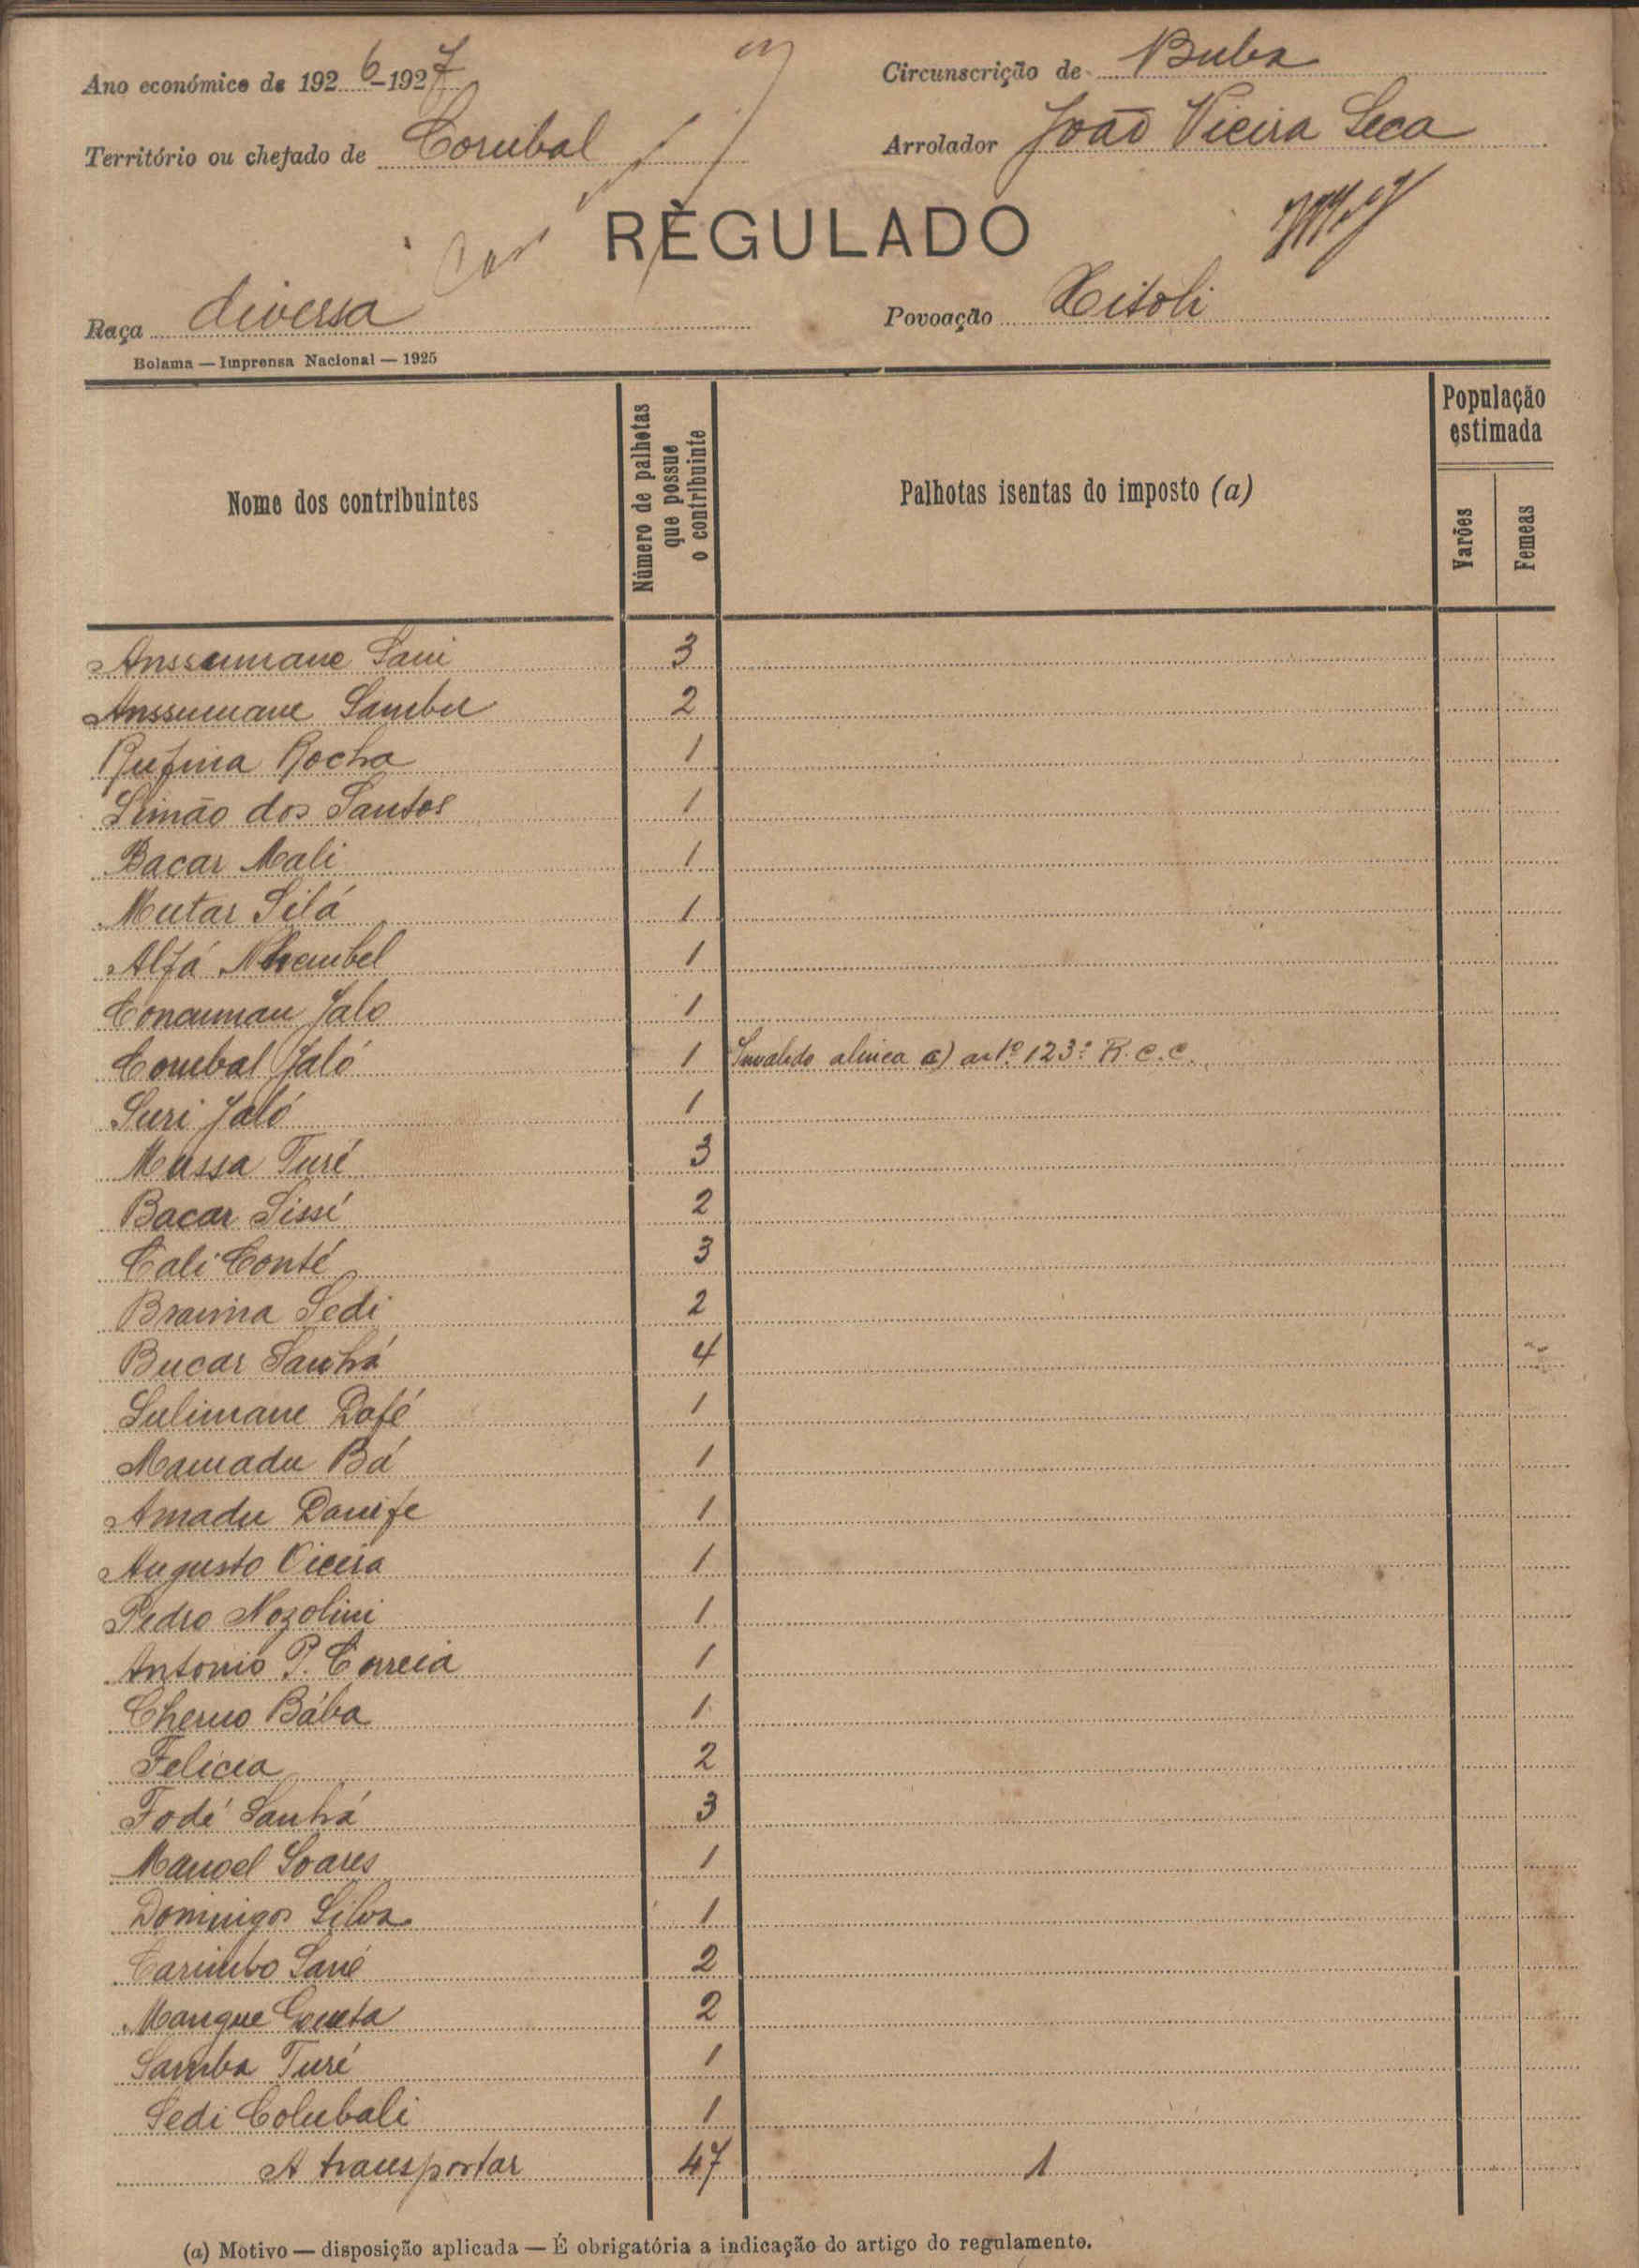 Ano económico de 1926-1927
Circunscrição de Buba
Território ou chefado de Corubal
Arrolador João Vieira Seca
REGULADO
Raça diversa
Povoação Xitoli
Bolama — Imprensa Nacional — 1925
Nome dos contribuintes
Número de palhotas que possue o contribuinte
Palhotas isentas do imposto (a)
População estimada
Varões
Femeas
Anssumane Sani 3
Anssumane Sambu 2
Rufina Rocha 1
Simão dos Santos 1
Bacar Mali 1
Mutar Silá 1
Alfá Nhambel 1
Concuman Jalo 1
Corubal Jaló 1 Invalido alinea a) artº 123º R.C.C.
Suri Jaló 1
Mussa Turé 3
Bacar Sissé 2
Cali Conté 3
Braima Sedi 2
Bucar Sanhá 4
Sulimane Dafé 1
Mamadu Bá 1
Amadu Danife 1
Augusto Vieira 1
Pedro Nozolini 1
Antonio P. Correia 1
Cherno Bába 1
Felicia 2
Fodé Sanhá 3
Manoel Soares 1
Domingos Silva 1
Carimbo Sané 2
Mangue Conta 2
Samba Turé 1
Sedi Colubali 1
A transportar 47 1
(a) Motivo — disposição aplicada — É obrigatória a indicação do artigo do regulamento.